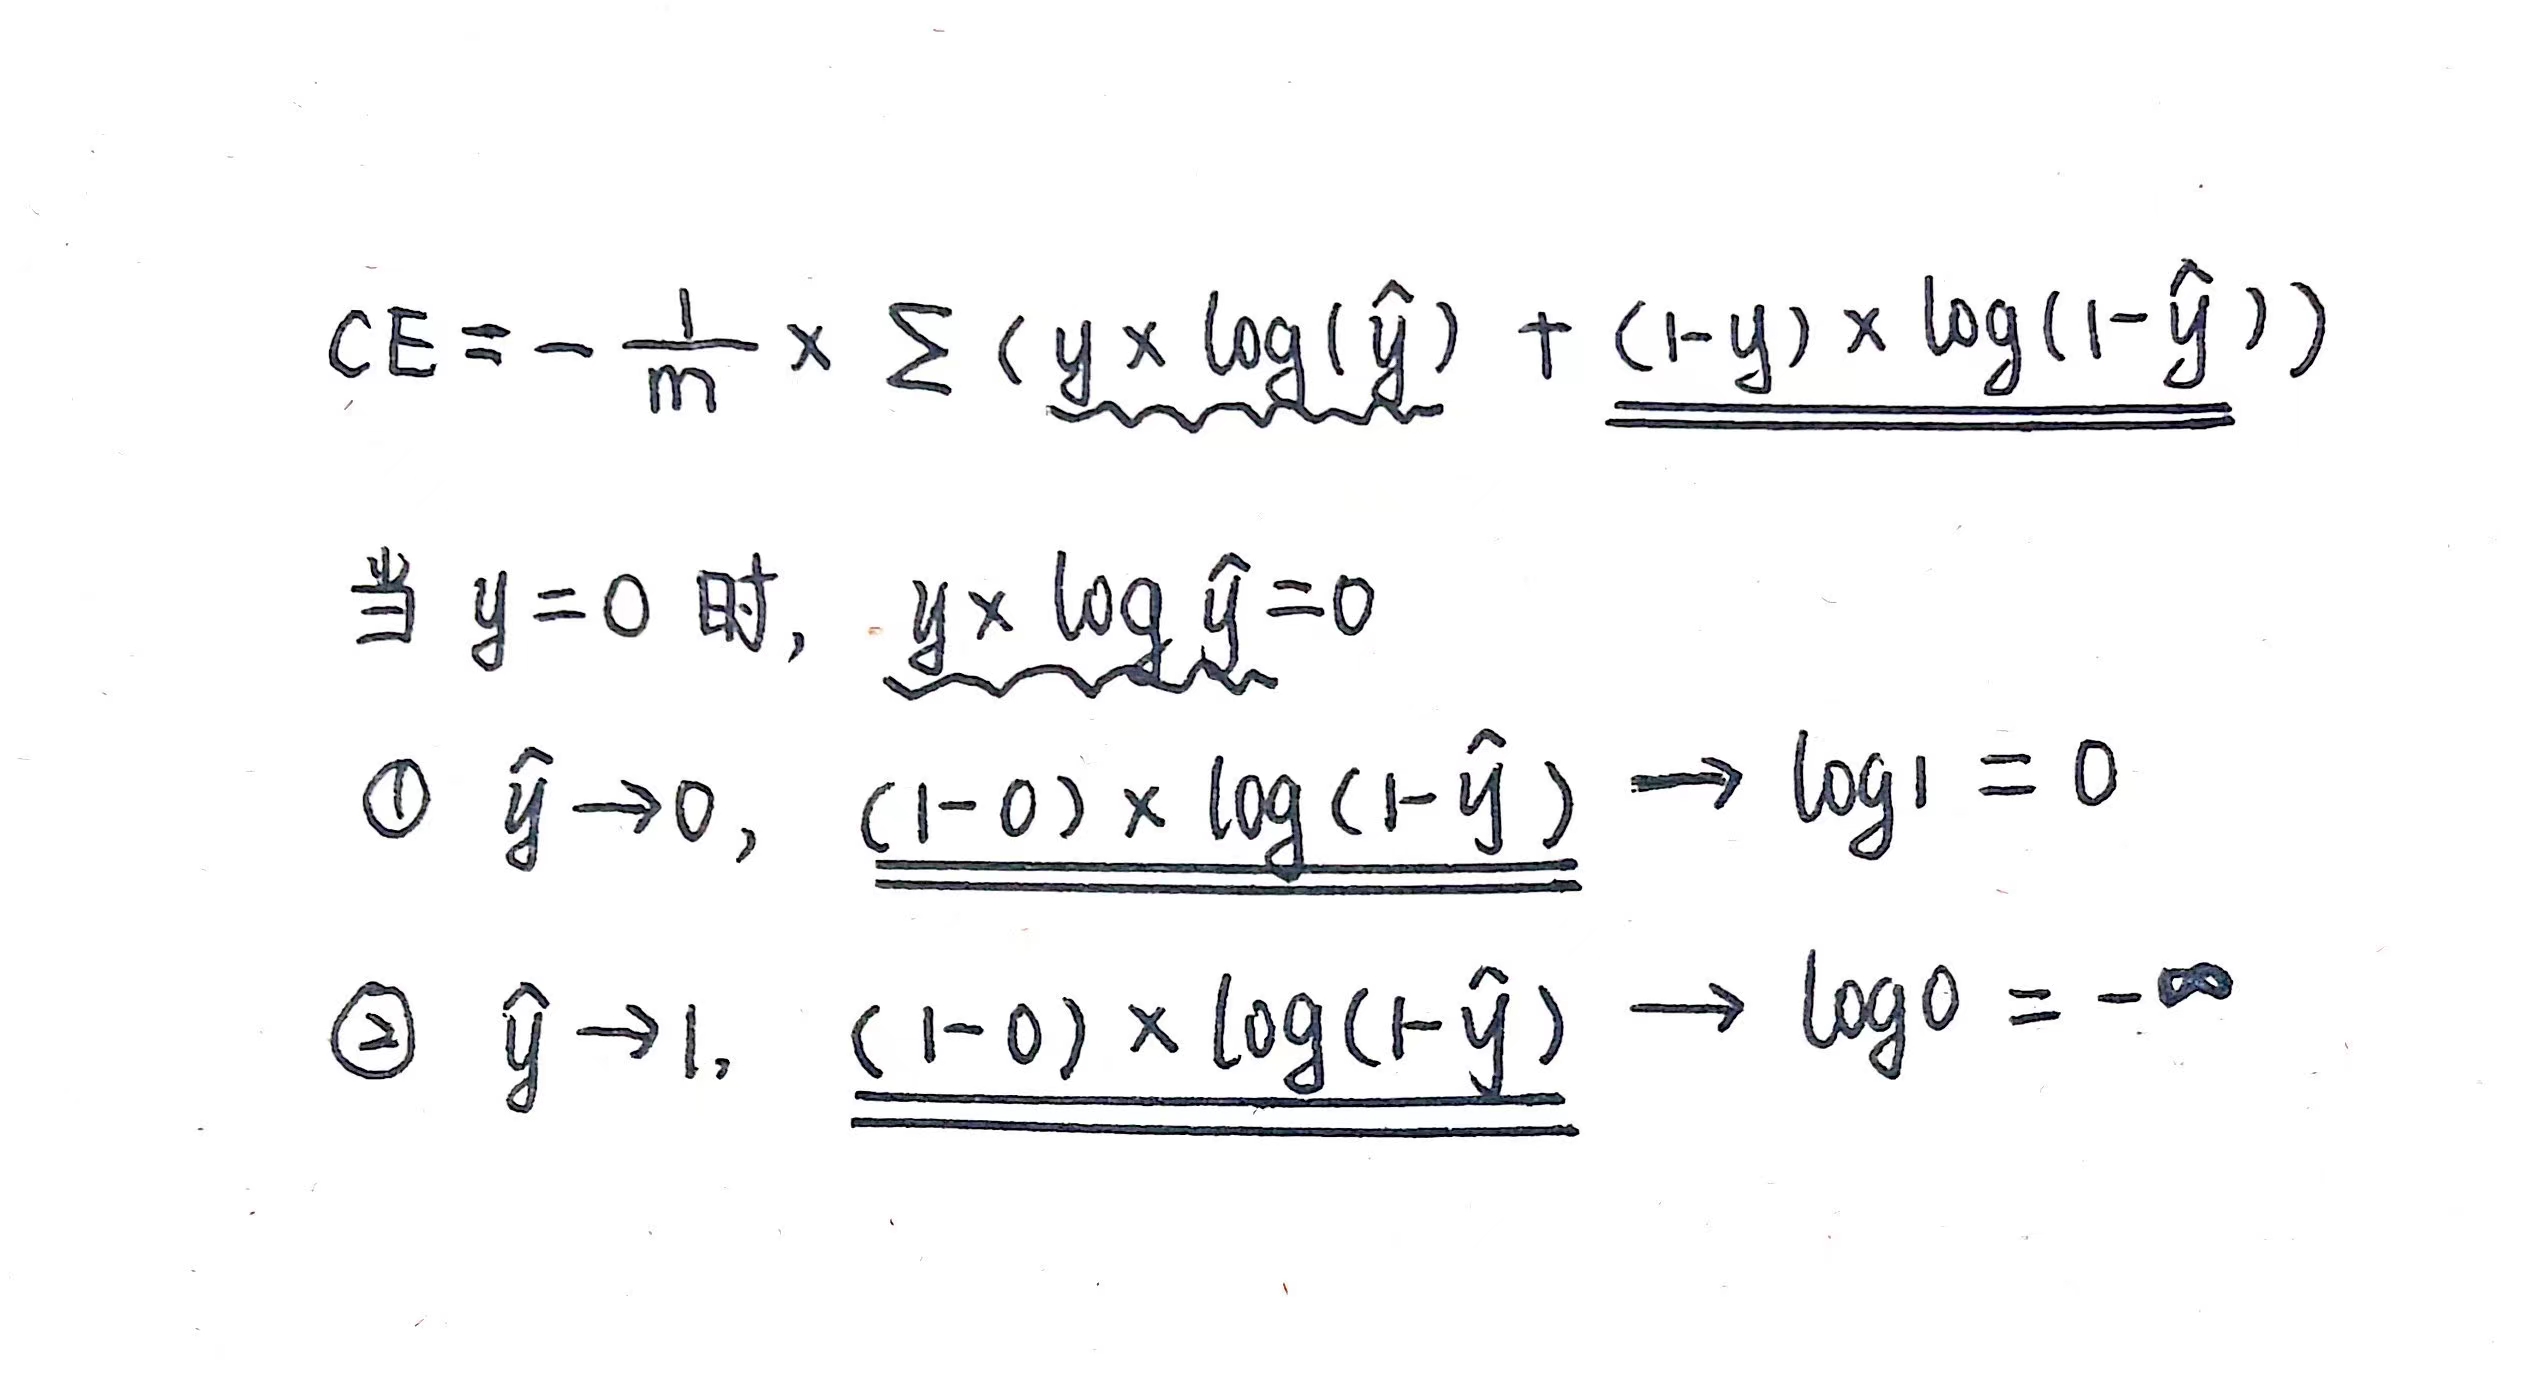 CE = - 1/m × Σ (y × log(ŷ) + (1-y) × log(1-ŷ))
当 y=0 时, y × log ŷ = 0
① ŷ → 0, (1-0) × log(1-ŷ) → log1 = 0
② ŷ → 1, (1-0) × log(1-ŷ) → log0 = -∞